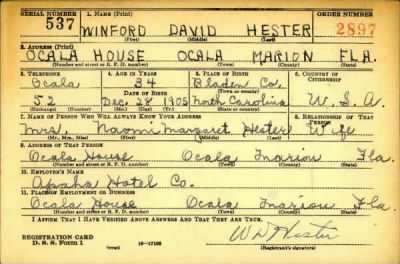 SERIAL NUMBER 1. NAME (Print) ORDER NUMBER
537 WINFORD DAVID HESTER 2897
(First) (Middle) (Last)
2. ADDRESS (Print)
OCALA HOUSE OCALA MARION FLA.
(Number and street or R. F. D. number) (Town) (County) (State)
3. TELEPHONE 4. AGE IN YEARS 5. PLACE OF BIRTH 6. COUNTRY OF CITIZENSHIP
Ocala 34 Bladen Co.
DATE OF BIRTH (Town or county)
52 Dec. 28 1905 North Carolina U.S.A.
(Mo.) (Day) (Yr.) (State or country)
7. NAME OF PERSON WHO WILL ALWAYS KNOW YOUR ADDRESS 8. RELATIONSHIP OF THAT PERSON
Mrs. Naomi Margaret Hester Wife
(Mr., Mrs., Miss) (First) (Middle) (Last)
9. ADDRESS OF THAT PERSON
Ocala House Ocala Marion Fla.
(Number and street or R. F. D. number) (Town) (County) (State)
10. EMPLOYER'S NAME
Hotel Co.
11. PLACE OF EMPLOYMENT OR BUSINESS
Ocala House Ocala Marion Fla.
(Number and street or R. F. D. number) (Town) (County) (State)
I AFFIRM THAT I HAVE VERIFIED ABOVE ANSWERS AND THAT THEY ARE TRUE.
REGISTRATION CARD
D. S. S. Form 1 (over) 16-17105 W D Hester
(Registrant's signature)